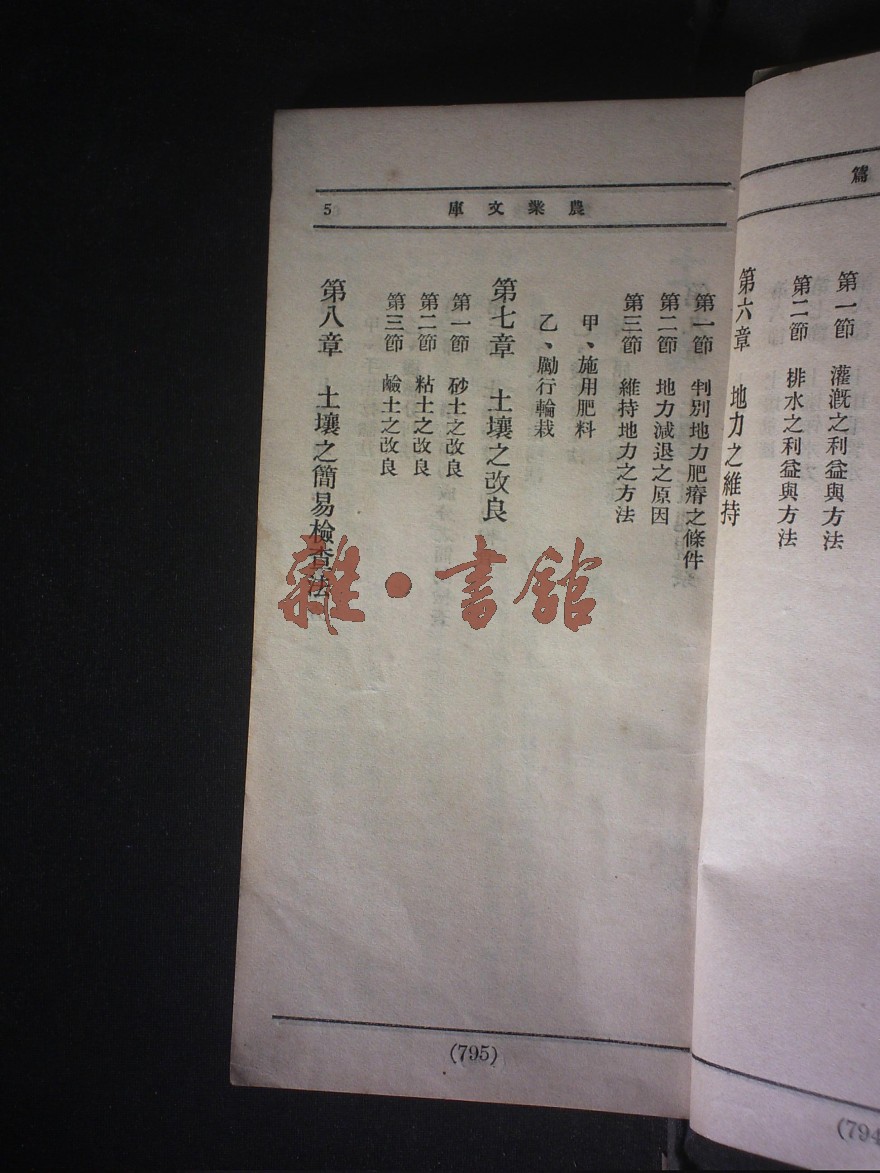 篇
第一節 灌漑之利益與方法
第二節 排水之利益與方法
第六章 地力之維持
(794
農業文庫
5
第一節 判別地力肥瘠之條件
第二節 地力減退之原因
第三節 維持地力之方法
甲、施用肥料
乙、勵行輪栽
第七章 土壤之改良
第一節 砂土之改良
第二節 粘土之改良
第三節 鹼土之改良
第八章 土壤之簡易檢查法
(795)
雜·書館